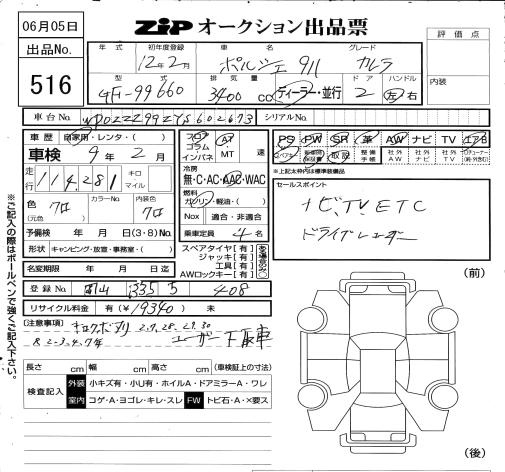 06月05日
ZiP オークション出品票
出品No.
516
評価点
内装
年式 初年度登録 車名 グレード
12年2月 ポルシェ 911 カレラ
型式 排気量 ドア ハンドル
GF-99660 3400 cc ディーラー・並行 2 左 右
車台No.
シリアルNo.
車歴 自家用・レンタ・( )
車検 9年2月
走行 114,281 キロ マイル
色 クロ カラーNo. 内装色 クロ
(元色 )
予備検 年 月 日(3・8)No.
形状 キャンピング・放置・事務室・( )
名変期限 年 月 日迄
登録No. 岡山 335 5 408
リサイクル料金 有(¥19340) 未
フロア コラム インパネ AT MT 速
冷房
無・C・AC・AAC・WAC
燃料
ガソリン・軽油・( )
Nox 適合・非適合
乗車定員 4名
スペアタイヤ【有】
ジャッキ【有】
工具【有】
AWロックキー【有】
ある場合のみ○
PS PW SR 革 AW ナビ TV エアB
取説 整備手帳 社外AW 社外ナビ 社外TV
*上記太枠内は標準装備品
セールスポイント
ナビ.TV.ETC
ドライブレコーダー
[注意事項] キロクボアリ 2.7.28.29.30
R2.3.4.7年 ユーザー下取車
長さ cm 幅 cm 高さ cm (車検証上の寸法)
検査記入 外装 小キズ有・小U有・ホイルA・ドアミラーA・ワレ
室内 コゲ・A・ヨゴレ・キレ・スレ FW トビ石・A・×要ス
(前)
(後)
※ご記入の際はボールペンで強くご記入下さい。